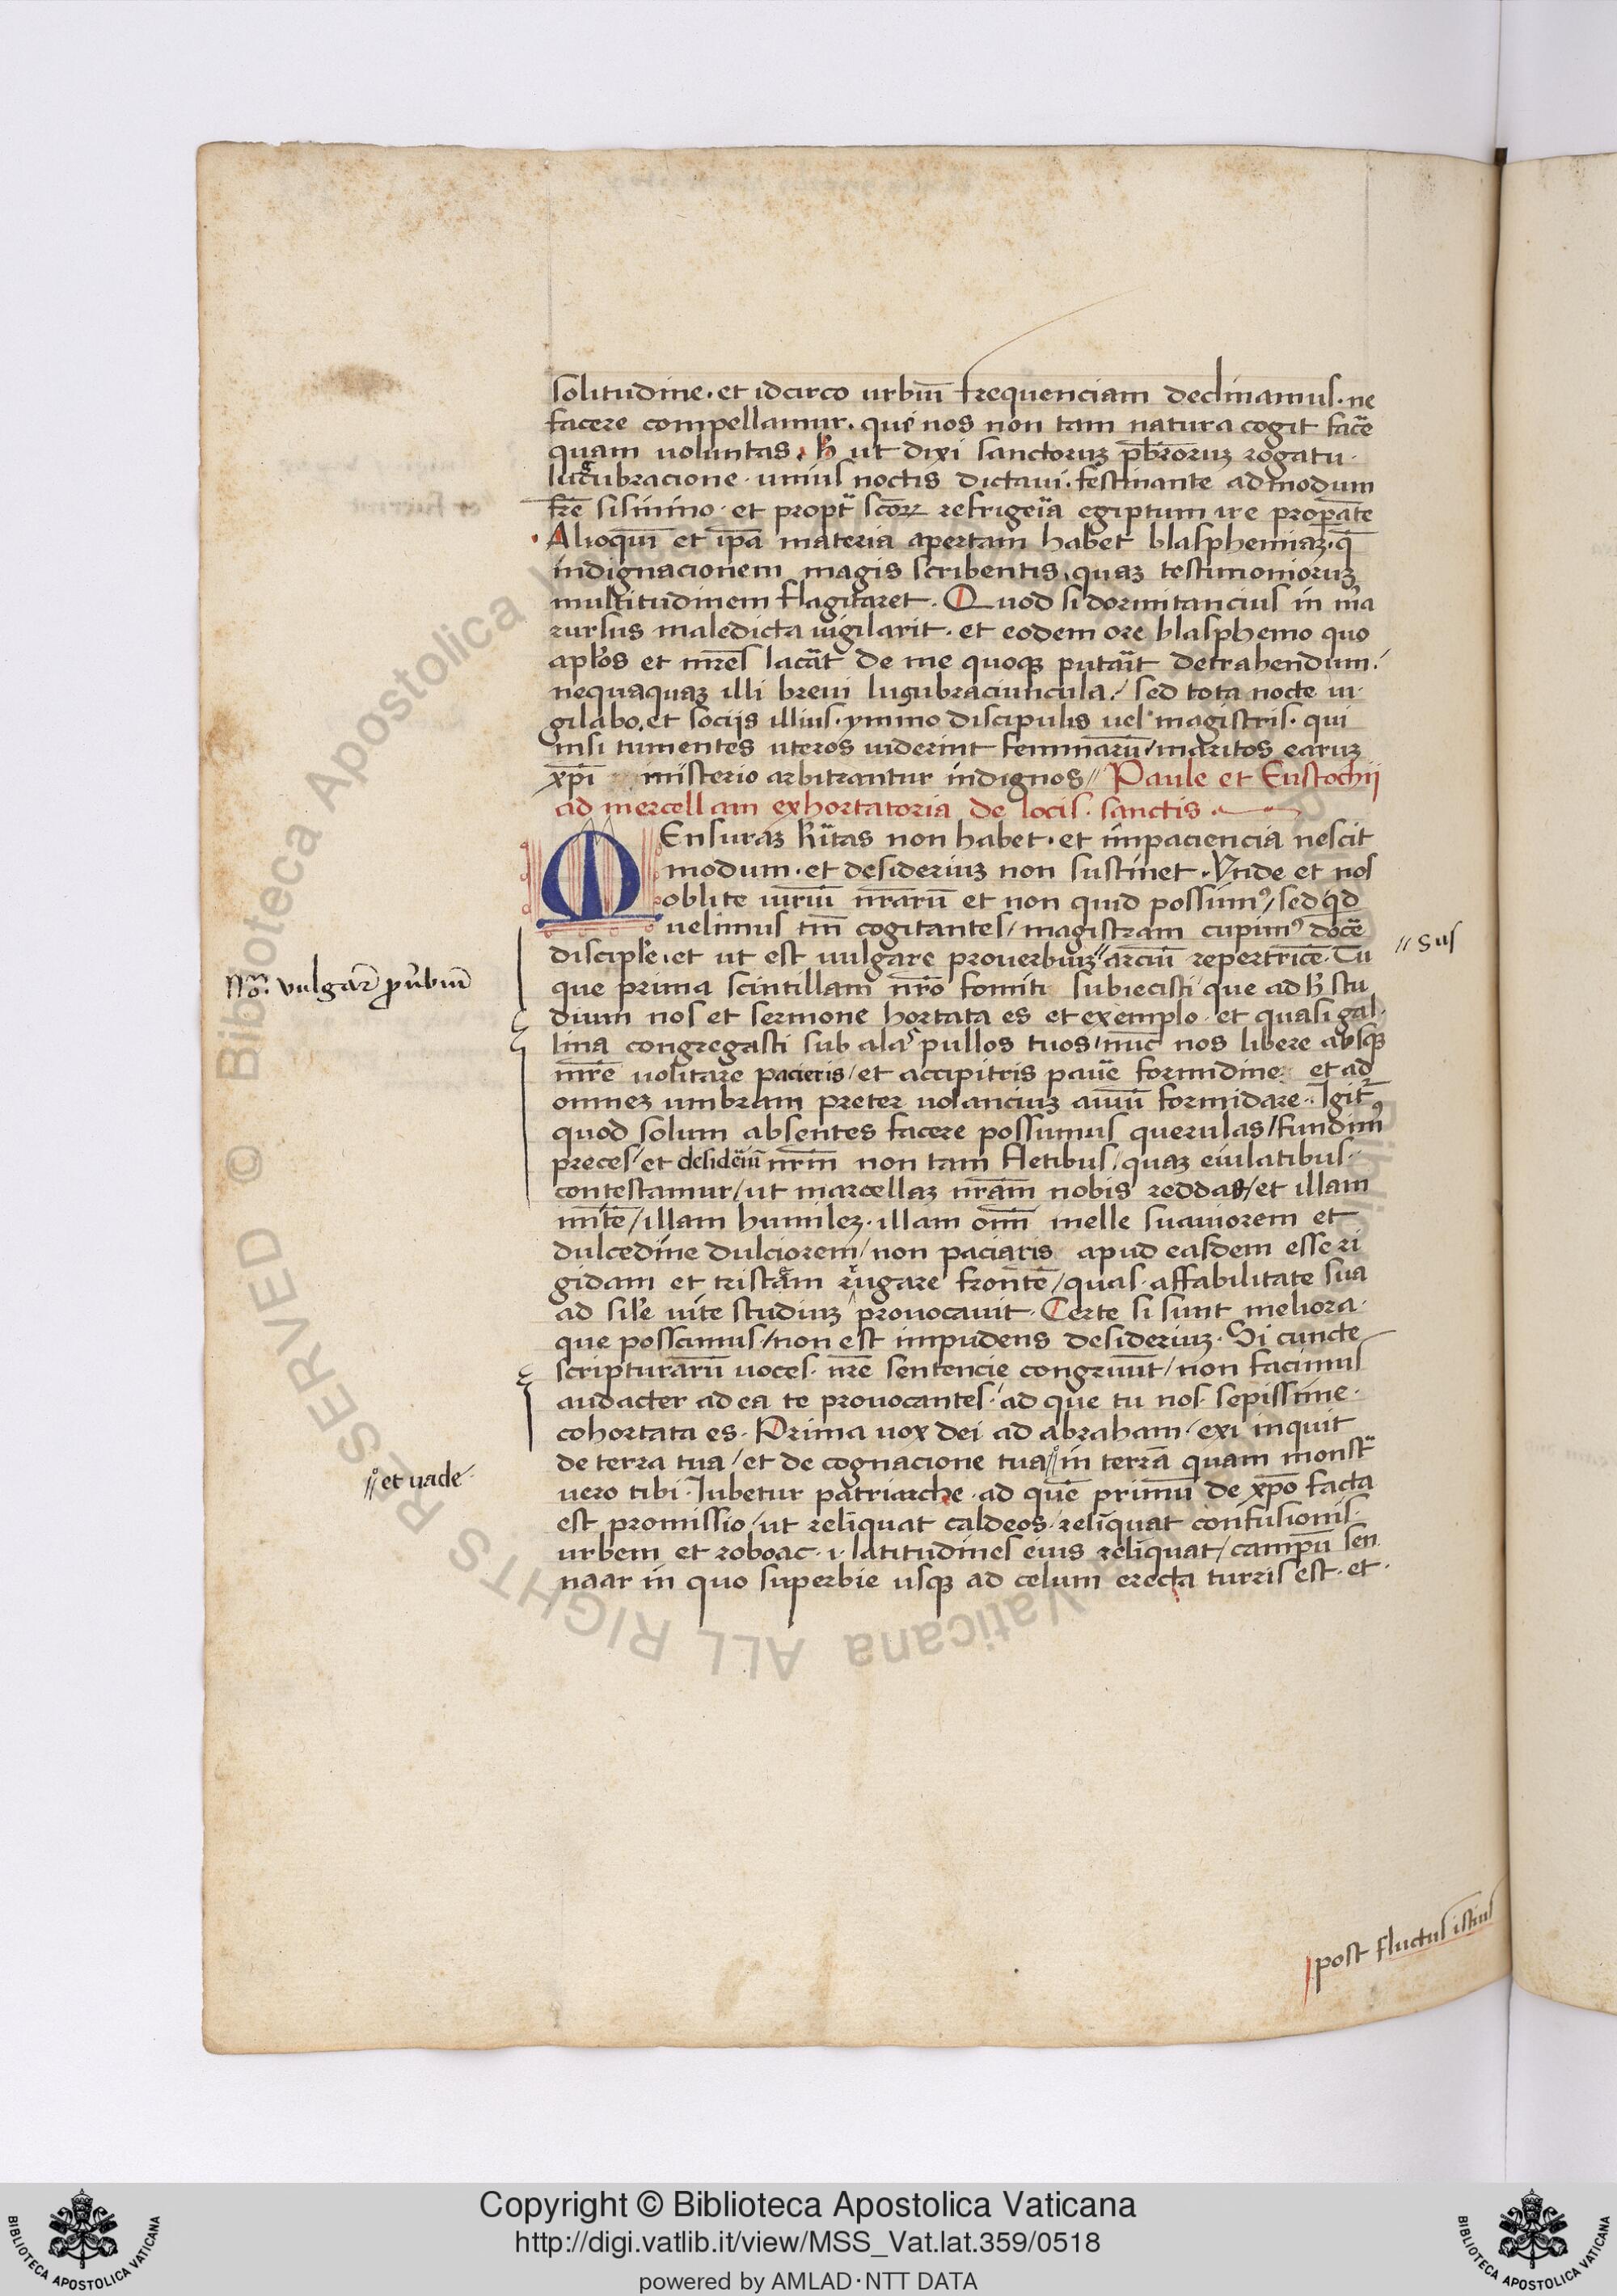 solitudine · et idcirco urbiū frequenciam declinamus · ne
facere compellamur · que nos non tam natura cogit facē
quam voluntas · h̄ ut dixi sanctoruꝫ pb̄roruꝫ rogatu ·
lucubracione · unius noctis dictavi · festinante admodum
fr̄e sisinino · et propt̄ scōꝝ refrigeīa egiptum ire propāte
Alioquī et ip̄a materia apertam habet blasphemiaꝫ · q̄
indignacionem magis scribentis, quaꝫ testimonioruꝫ
multitudinem flagitaret · Quod si dormitancius in m̄a
rursus maledicta vigilarit · et eodem ore blasphemo quo
apl̄os et mr̄es lac̄at de me quoqꝫ putaīt detrahendum /
nequaquaꝫ illi brevi lugubraciuncula / sed tota nocte vi ·
gilabo, et socijs illius · ymmo discipulis vel magistris · qui
nisi tumentes uteros viderint feminarū / maritos earuꝫ
xp̄i misterio arbitrantur indignos // Paule et Eustochij
ad mercellam exhortatoria de locis · sanctis ·
MEnsuraꝫ k̄itas non habet · et impaciencia nescit
modum · et desideriuꝫ non sustinet · Vnde et nos
oblite viriū nr̄arū et non quid possimꝰ / sed qd̄
velimus tm̄ cogitantes / magistram cupimꝰ docē
discipl̄e, et ut est vulgare proverbiuꝫ // arciū repertricē · Tu
que prima scintillam nr̄o fomiti subiecisti / que ad h̄ stu
dium nos et sermone hortata es et exemplo · et quasi gal ·
lina congregasti sub ala pullos tuos / nūc nos libere absqꝫ
mr̄e volitare pacieris / et accipitris pavē formidine et ad
omneꝫ umbram preter volanciuꝫ aviū formidare · Igit̄
quod solum absentes facere possumus querulas / fundimꝰ
preces / et desideīū nr̄m non tam fletibus / quaꝫ eiulatibus ·
contestamur / ut marcellaꝫ nr̄am nobis reddas / et illam
mitē / illam humileꝫ · illam om̄i melle suaviorem et
dulcedine dulciorem / non paciaris apud easdem esse ri
gidam et tristam rugare frontē / quas · affabilitate sua
ad sil̄e vite studiuꝫ provocavit · Certe si sunt meliora ·
que poscimus / non est impudens desideriuꝫ · Si cuncte
scripturarū voces · nr̄e sentencie congruūt / non facimus
audacter ad ea te provocantes · ad que tu nos · sepissime ·
cohortata es · Prima vox dei ad abraham / exi inquit
de terra tua / et de cognacione tua // in terrā quam monst̄
vero tibi · Iubetur patriarche · ad quē primū de xp̄o facta
est promissio / ut relīquat caldeos / relīquat confusionis ·
urbem et roboac · i · latitudines eius relīquat / campū sen
naar in quo superbie usqꝫ ad celum erecta turris est · et ·
// sus
No: vulgar̄ ꝓv̄biū
// et vade ·
post fluctus istius
Copyright © Biblioteca Apostolica Vaticana
http://digi.vatlib.it/view/MSS_Vat.lat.359/0518
powered by AMLAD · NTT DATA
BIBLIOTECA APOSTOLICA VATICANA
BIBLIOTECA APOSTOLICA VATICANA